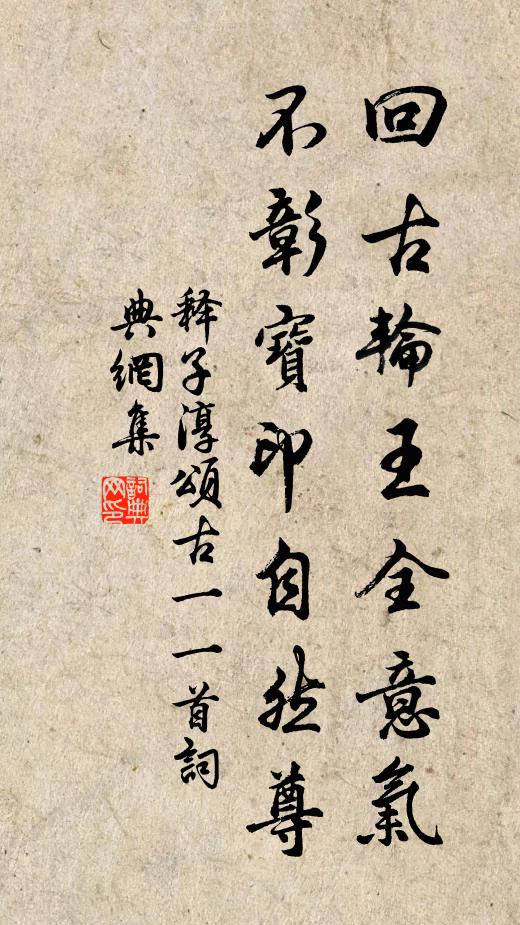 回古輪王全意氣
不彰寶印自然尊
释子淳頌古一一首詞
典網集
詞典
网印